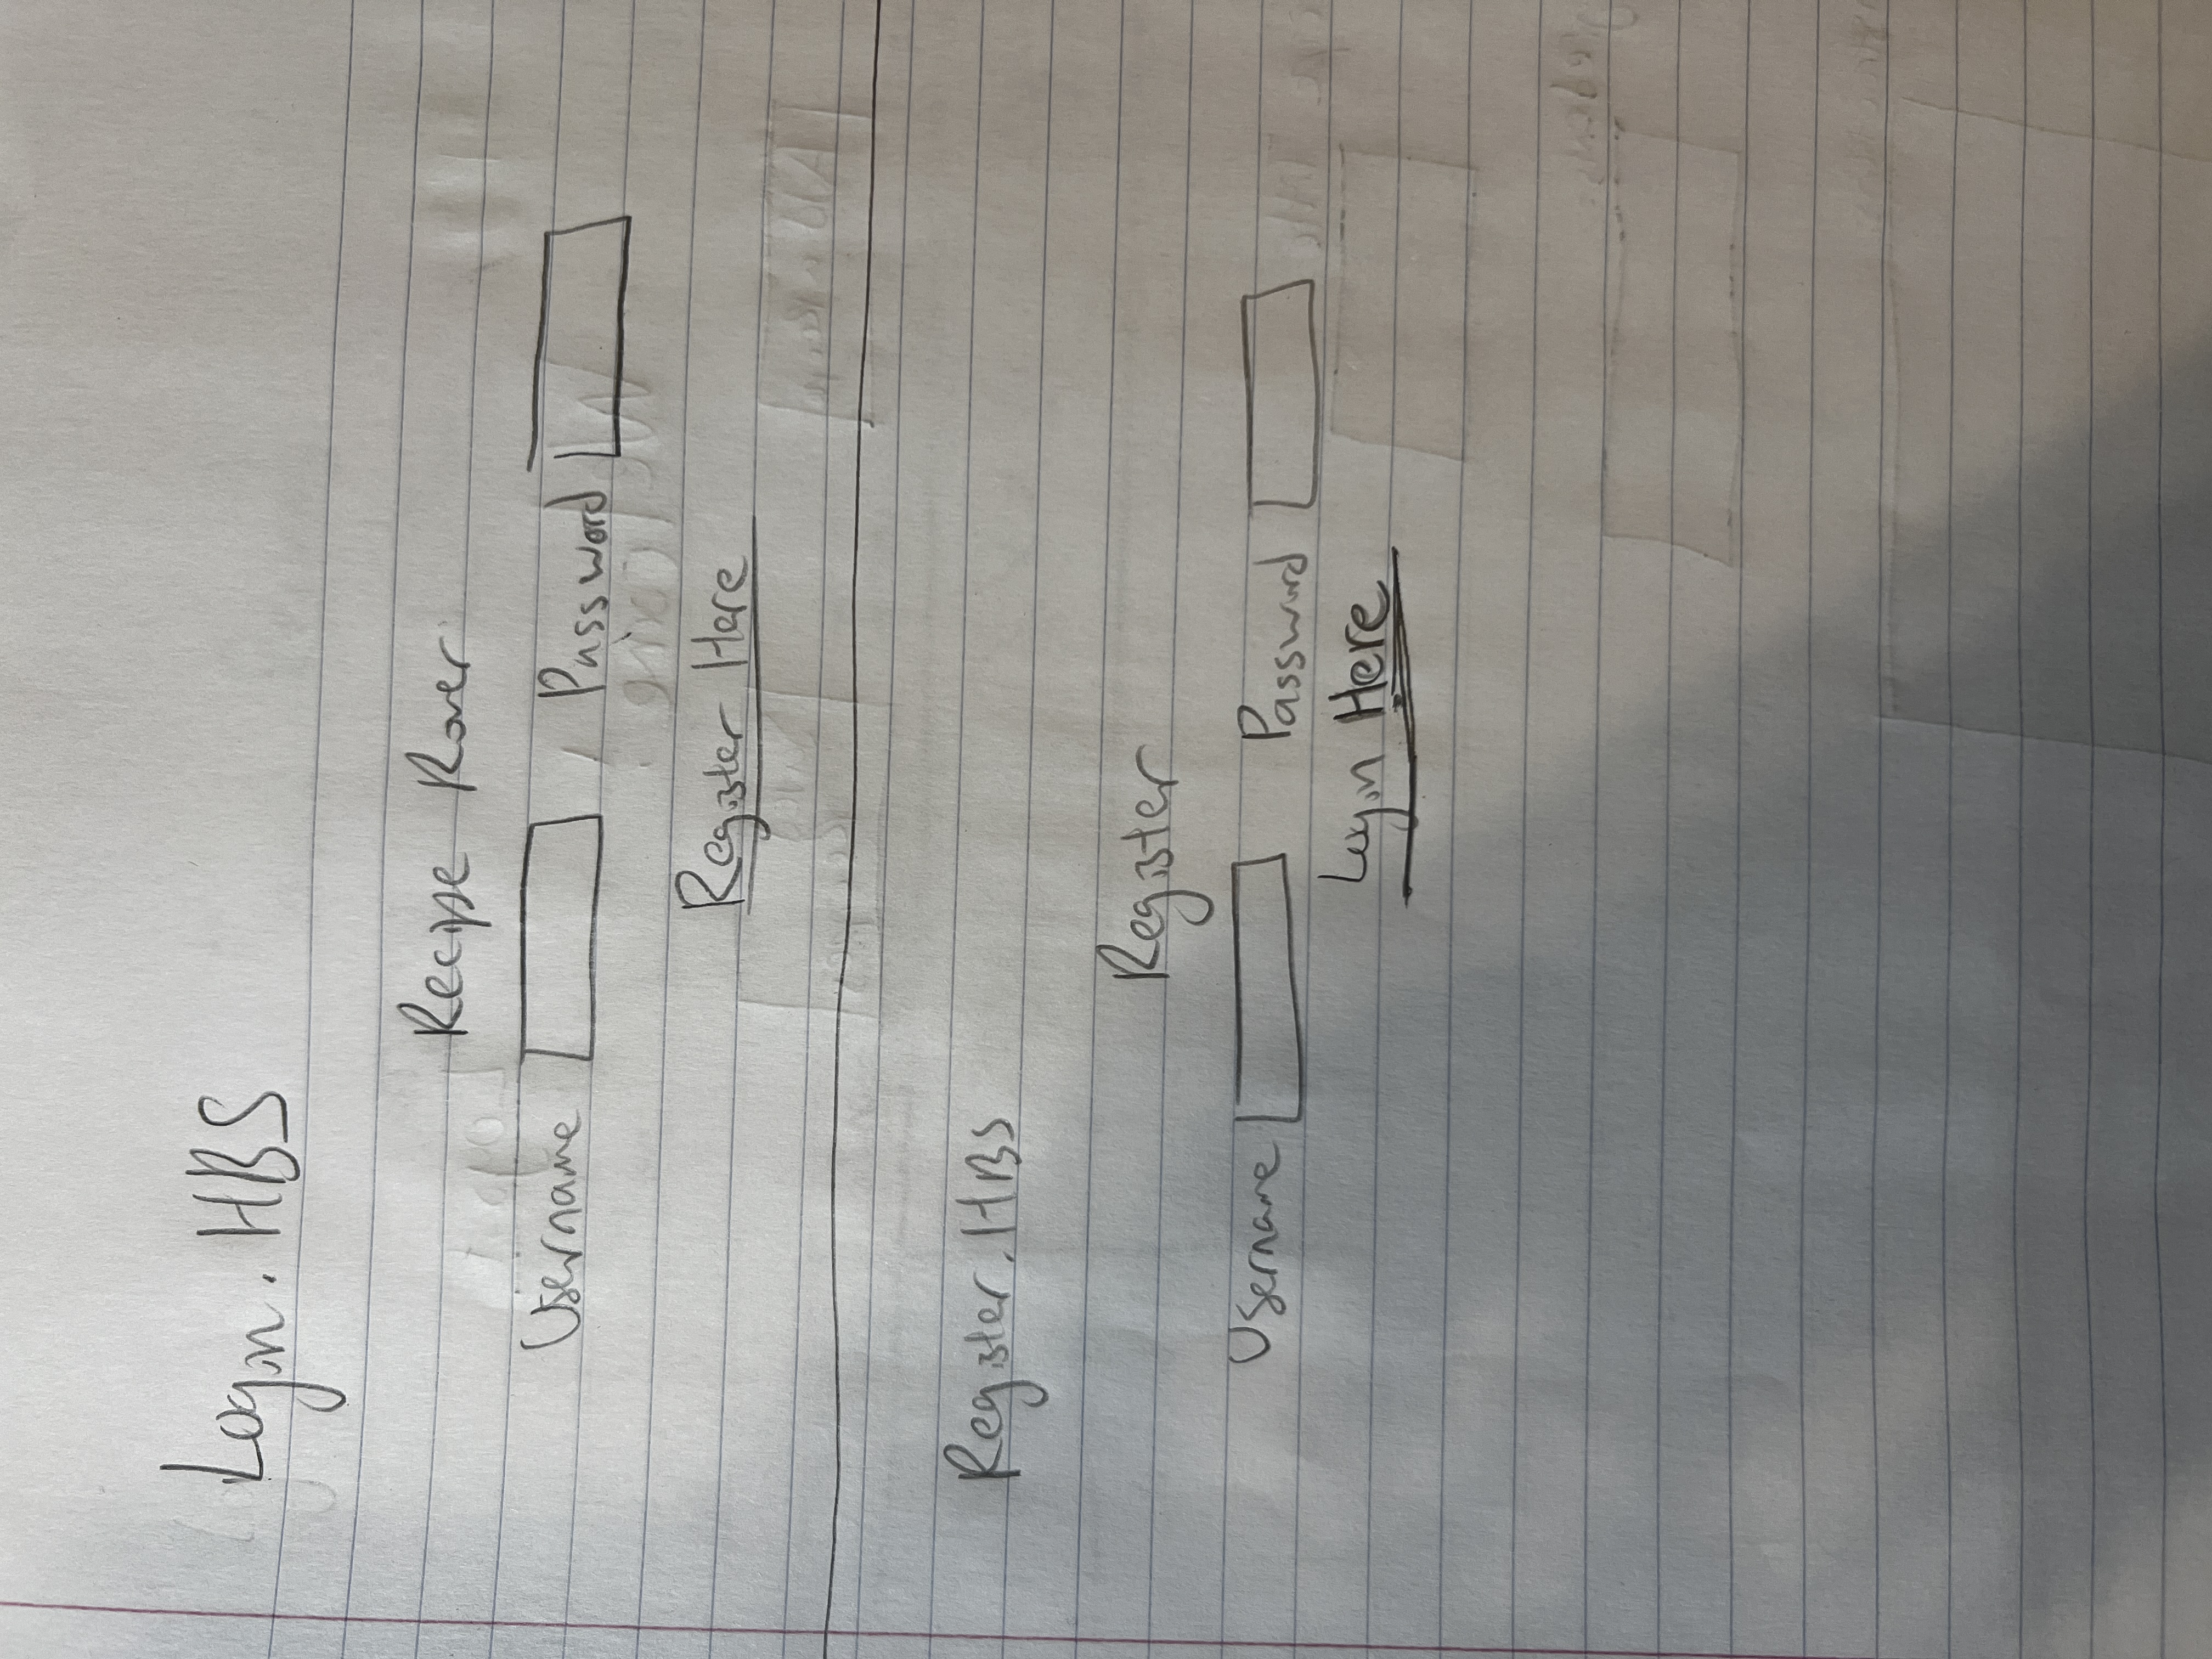 Login.HBS
Recipe Rover
Username Password
Register Here
Register.HBS
Register
Username Password
Login Here